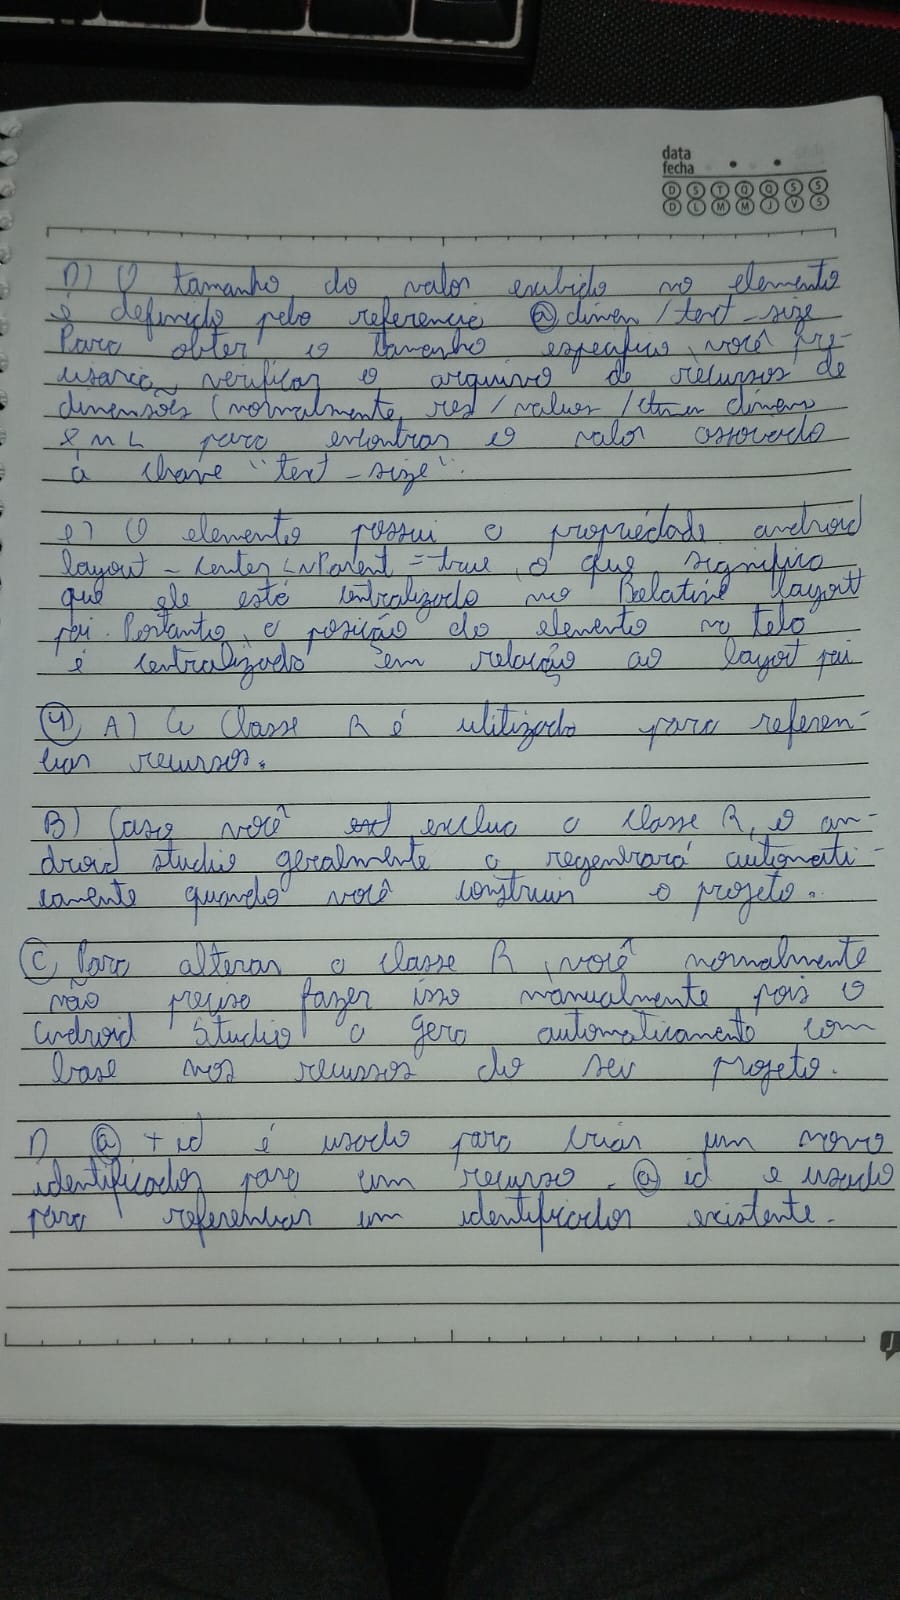 data
fecha
D S T Q Q S S
D L M M J V S
D) O tamanho do valor exibido no elemento
é definido pela referencia @dimen/text-size
Para obter o tamanho especifico, você pre-
cisaria verificar o arquivo de recursos de
dimensões (normalmente, res/values/ dimens
XML para encontrar o valor associado
à chave "text-size".
e) O elemento possui a propriedade android
layout-center InParent = true, o que significa
que ele está centralizado no Relative layort
pai. Portanto, a posição do elemento na tela
é centralizada em relação ao layort pai
4) A) A Classe R é ulitizada para referen-
ciar recursos.
B) Caso você exclua a classe R, o an-
droid studio geralmente a regenerará automati-
camente quando você construir o projeto.
C) Para alterar a classe R, você normalmente
não precisa fazer isso manualmente pois o
Android Studio a gera automaticamente com
base nos recursos do seu projeto.
D @+id é usado para criar um novo
identificador para um recurso. @id e usado
para referenciar um identificador existente.